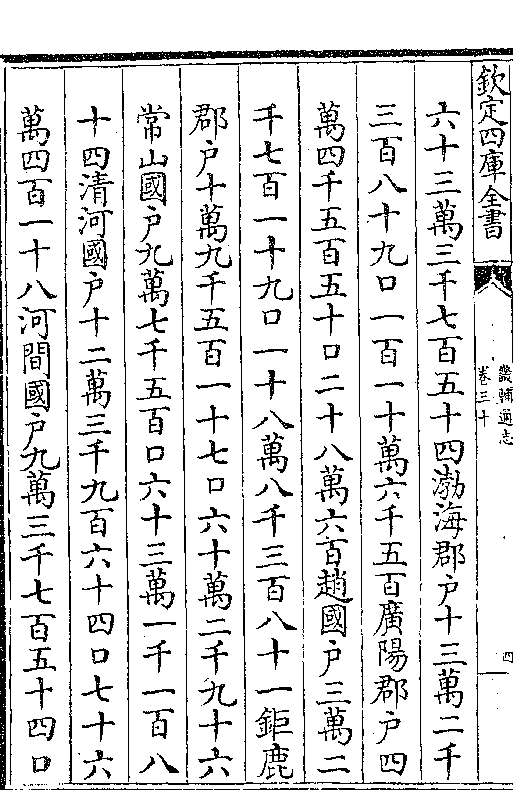 欽定四庫全書
畿輔通志
卷三十
四
六十三萬三千七百五十四渤海郡户十三萬二千
三百八十九口一百一十萬六千五百廣陽郡户四
萬四千五百五十口二十八萬六百趙國户三萬二
千七百一十九口一十八萬八千三百八十一鉅鹿
郡户十萬九千五百一十七口六十萬二千九十六
常山國户九萬七千五百口六十三萬一千一百八
十四清河國户十二萬三千九百六十四口七十六
萬四百一十八河間國户九萬三千七百五十四口